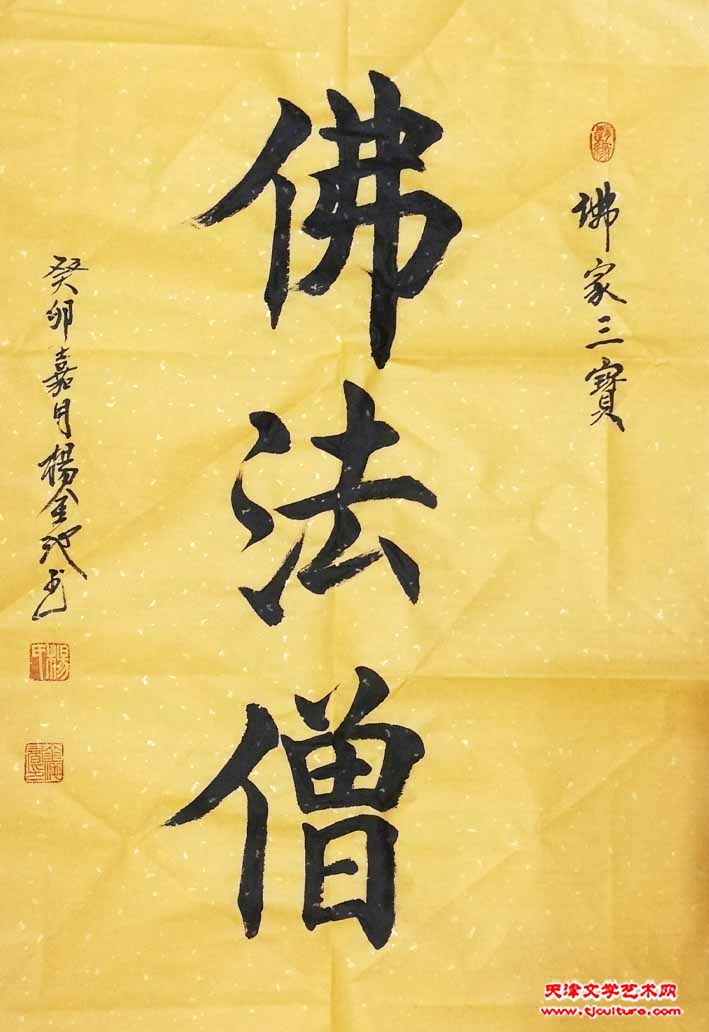 佛家三寳
佛法僧
癸卯嘉月楊金池書
天津文学艺术网
www.tjculture.com